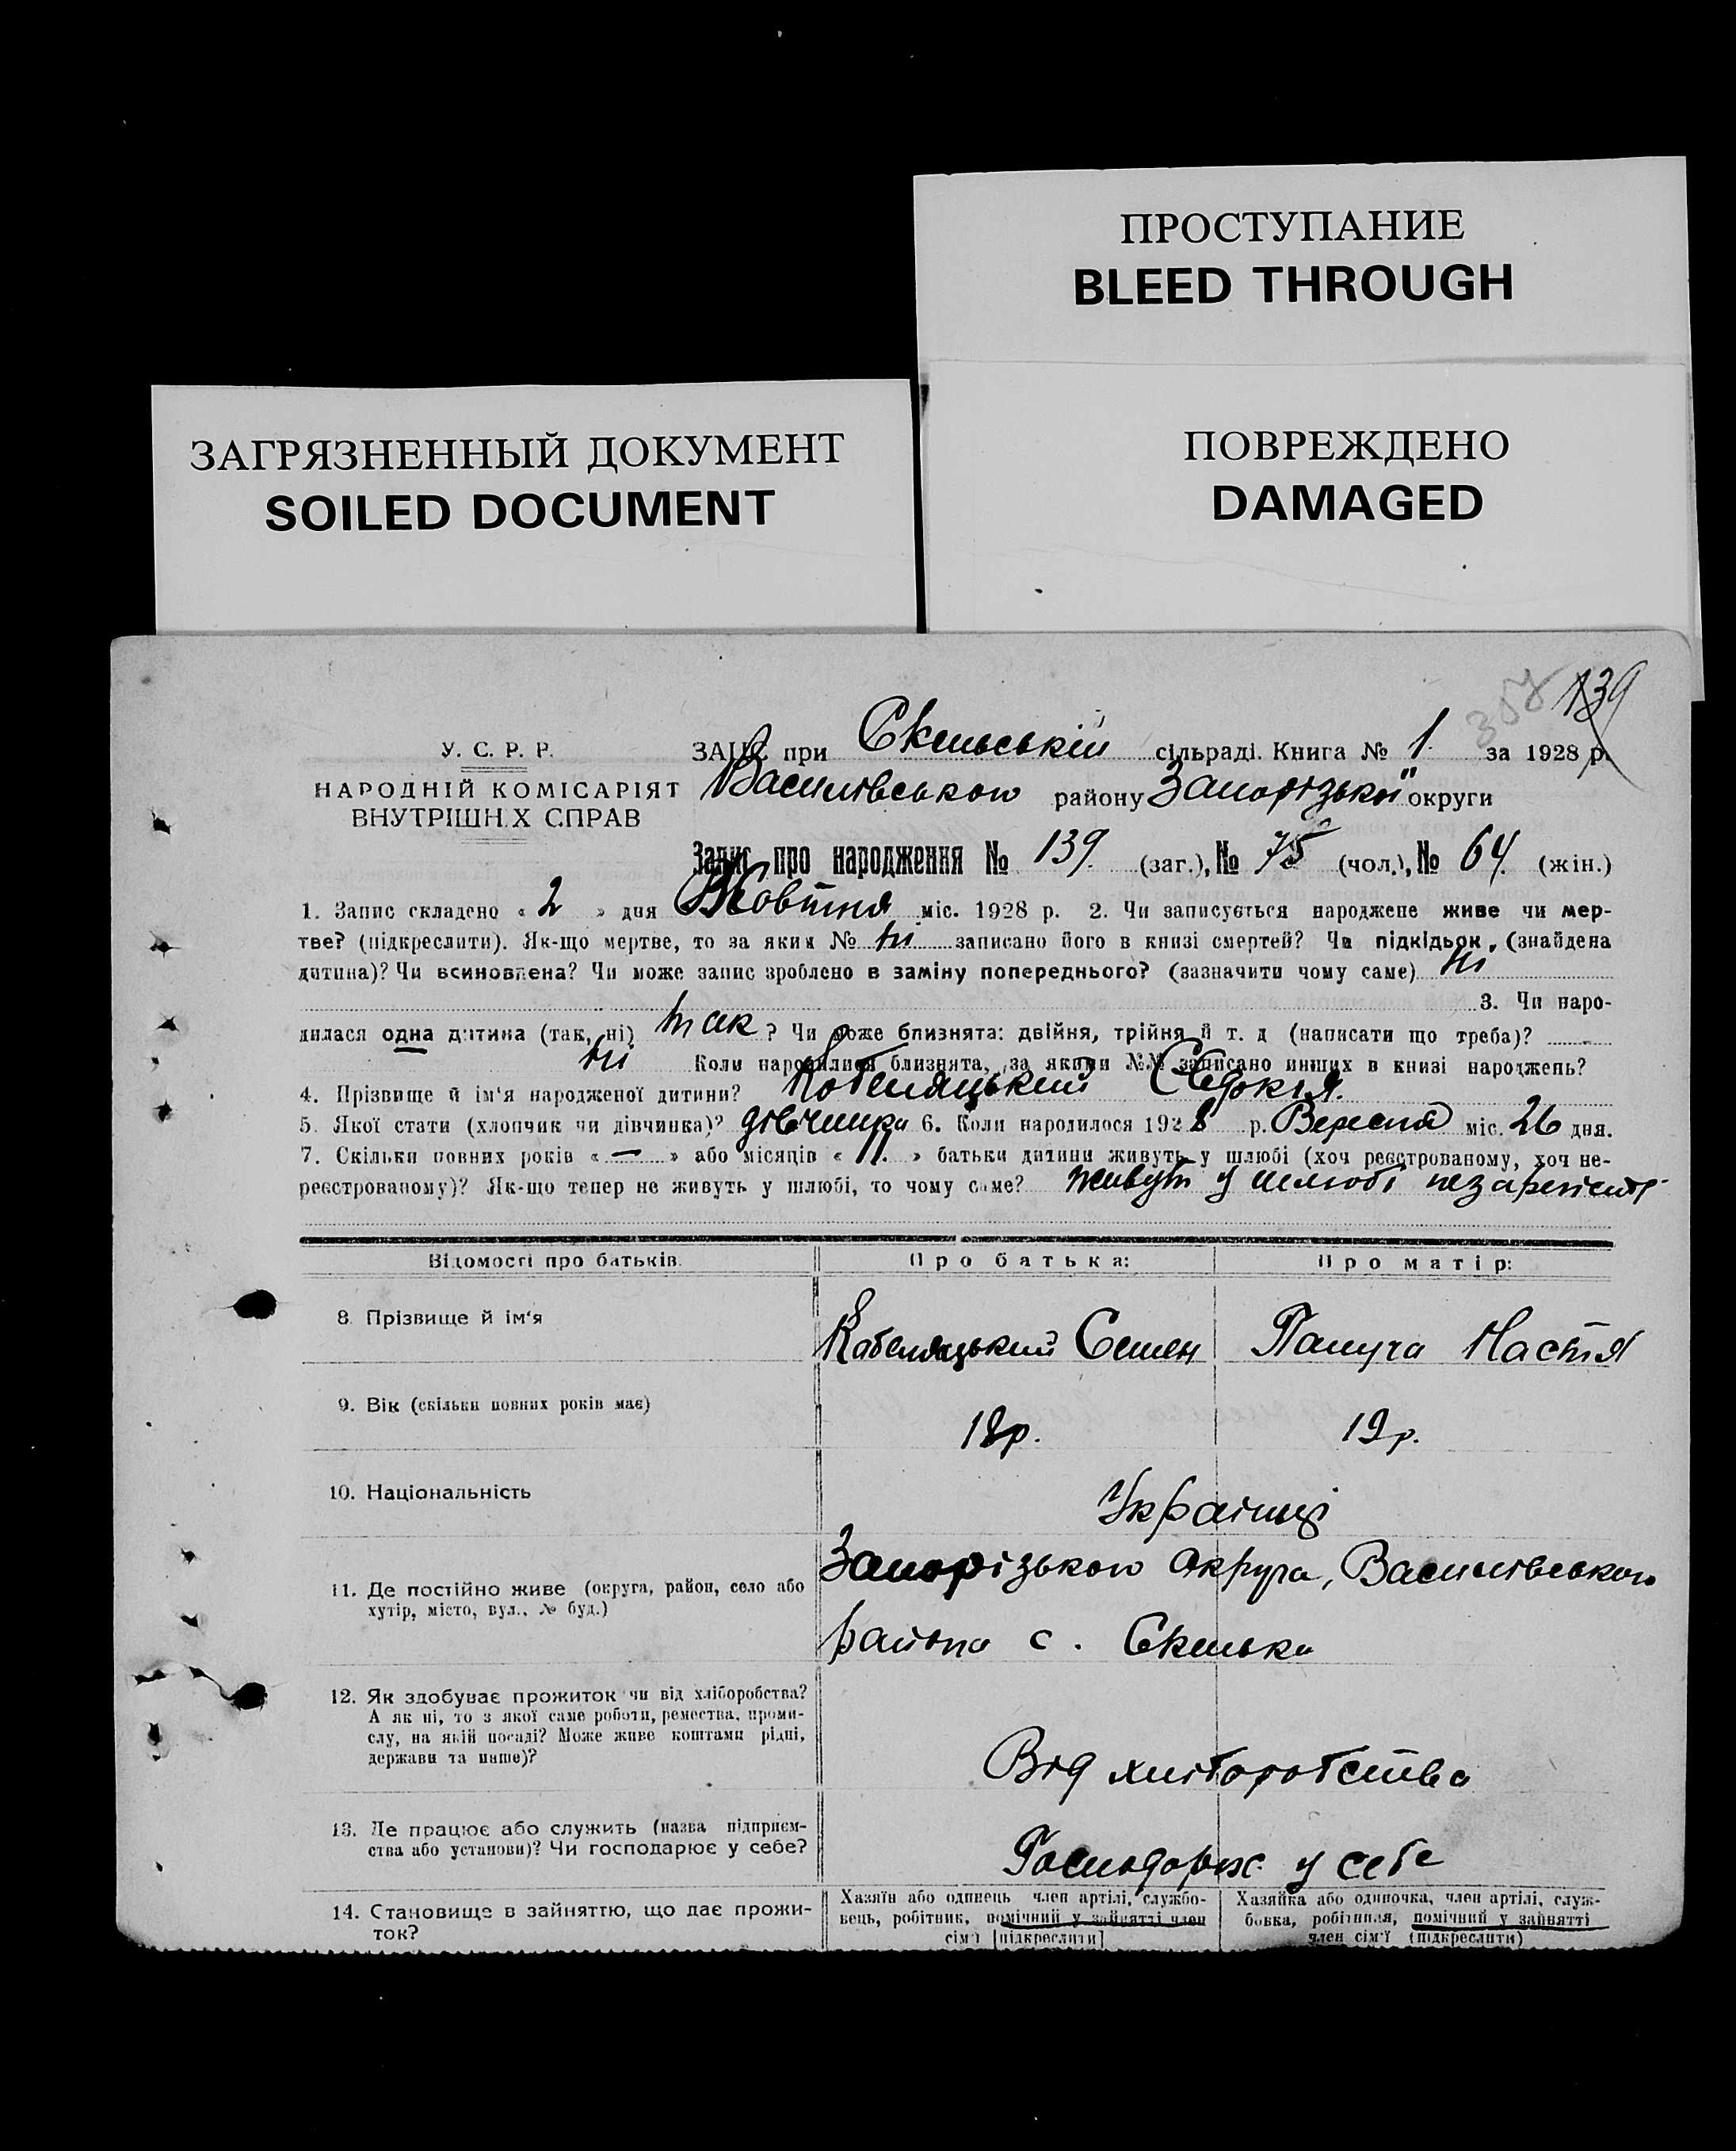 ПРОСТУПАНИЕ
BLEED THROUGH
ЗАГРЯЗНЕННЫЙ ДОКУМЕНТ
SOILED DOCUMENT
ПОВРЕЖДЕНО
DAMAGED
357 139
У. С. Р. Р.
НАРОДНІЙ КОМІСАРІЯТ
ВНУТРІШНІХ СПРАВ
ЗАПИС при Скельській сільраді. Книга № 1. за 1928 р.
Василівського району Запорізької округи
Запис про народження № 139. (заг.), № 75 (чол.), № 64. (жін.)
1. Запис складено « 2 » дня Жовтня міс. 1928 р. 2. Чи записується народжене живе чи мер-
тве? (підкреслити). Як-що мертве, то за яким № ні записано його в книзі смертей? Чи підкідьок, (знайдена
дитина)? Чи всиновлена? Чи може запис зроблено в заміну попереднього? (зазначити чому саме) ні
3. Чи наро-
дилася одна дитина (так, ні) так ? Чи може близнята: двійня, трійня й т. д (написати що треба)?
ні Коли народилися близнята, за якими №№ записано инших в книзі народжень?
4. Прізвище й ім'я народженої дитини? Кобеляцький Євдокія.
5. Якої стати (хлопчик чи дівчинка)? дівчинка 6. Коли народилося 1928 р. Вересня міс. 26 дня.
7. Скільки повних років « — » або місяців « 11. » батьки дитини живуть у шлюбі (хоч реєстрованому, хоч не-
реєстрованому)? Як-що тепер не живуть у шлюбі, то чому саме? живуть у шлюбі
Відомості про батьків. Про батька: Про матір:
8. Прізвище й ім'я Кобеляцький Семен Папуча Настя
9. Вік (скільки повних років має) 18р. 19р.
10. Національність Українці
11. Де постійно живе (округа, район, село або Запорізького округа, Василівського
хутір, місто, вул., № буд.)
района с. Скелька
12. Як здобуває прожиток чи від хліборобства?
А як ні, то з якої саме роботи, ремества, проми-
слу, на якій посаді? Може живе коштами рідні,
держави та инше)? Від хліборобства
13. Де працює або служить (назва підприєм-
ства або установи)? Чи господарює у себе? Господарює у себе
14. Становище в зайняттю, що дає прожи-
ток?
Хазяїн або одинець член артілі, службо-
вець, робітник, помічний у зайнятті член
сім'ї [підкреслити]
Хазяйка або одиночка, член артілі, служ-
бовка, робітниця, помічний у зайнятті
член сім'ї (підкреслити)